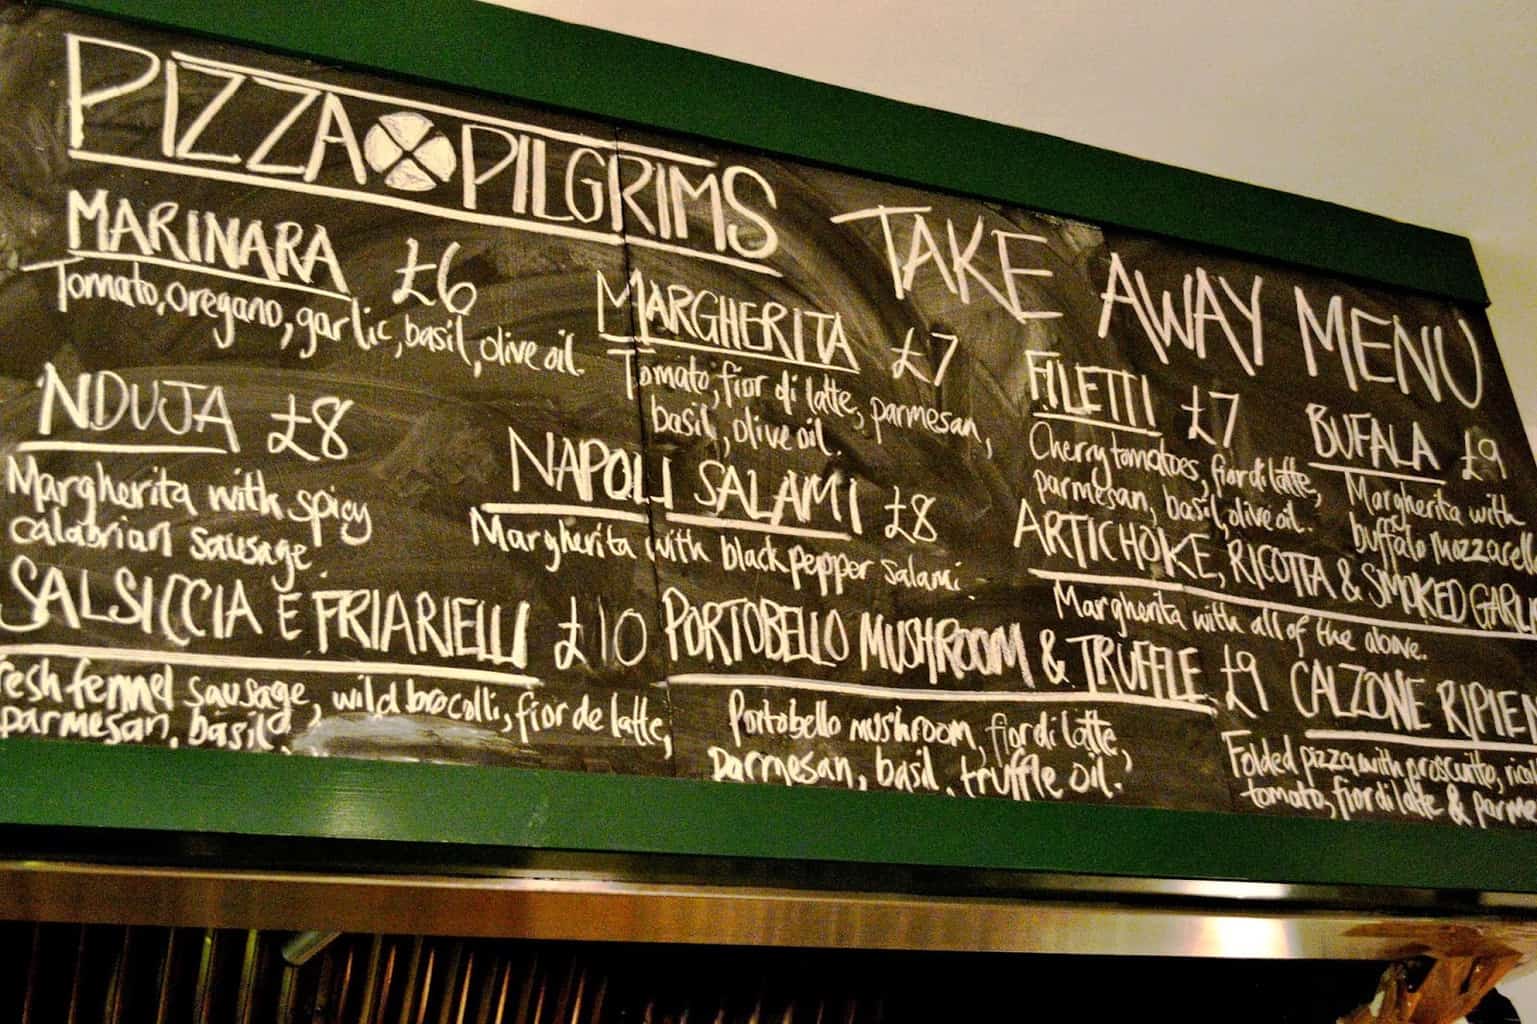 PIZZA PILGRIMS
TAKE AWAY MENU
MARINARA £6
Tomato, oregano, garlic, basil, olive oil.
MARGHERITA £7
Tomato, fior di latte, parmesan,
basil, olive oil.
FILETTI £7
Cherry tomatoes, fior di latte,
parmesan, basil, olive oil.
BUFALA £9
Margherita with
buffalo mozzarell
NDUJA £8
Margherita with spicy
calabrian sausage.
NAPOLI SALAMI £8
Margherita with black pepper salami.
ARTICHOKE, RICOTTA & SMOKED GARLI
Margherita with all of the above.
SALSICCIA E FRIARIELLI £10
resh fennel sausage, wild brocolli, fior de latte,
parmesan, basil
PORTOBELLO MUSHROOM & TRUFFLE £9
Portobello mushroom, fior di latte,
parmesan, basil, truffle oil.
CALZONE RIPIEN
Folded pizza with proscutto,
tomato, fior di latte & parme